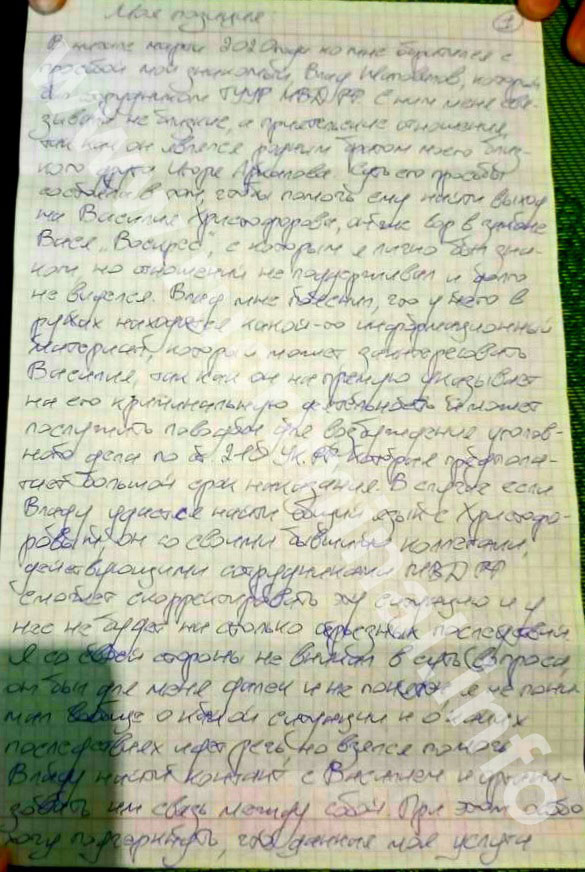 Моя позиция:
1
В начале марта 2020 года ко мне обратился с
просьбой мой знакомый Влад, который
был сотрудником ГУУР МВД РФ. С ним меня свя-
зывали не близкие, а приятельские отношения,
так как он являлся родным братом моего близ-
кого друга Игоря. Суть его просьбы
состояла в том, чтобы помочь ему найти выход
на Василия Христофорова, он же вор в законе
Вася „Воскрес", с которым я лично был зна-
ком, но отношений не поддерживал и долго
не виделся. Влад мне пояснил, что у него в
руках находится какой-то информационный
материал, который может заинтересовать
Василия, так как он напрямую указывает
на его криминальную деятельность и может
послужить поводом для возбуждения уголов-
ного дела по ст. 210 УК РФ, которые предпола-
гает большой срок наказания. В случае если
Владу удастся найти общий язык с Христофо-
ровым, он со своими бывшими коллегами,
действующими сотрудниками МВД РФ
сможет скорректировать эту ситуацию и у
нее не будет настолько серьезных последствий.
Я со своей стороны не вникал в суть вопроса,
он был для меня далек и не понятен, я не пони-
мал вообще о какой ситуации и о каких
последствиях идет речь, но взялся помочь
Владу найти контакт с Василием и органи-
зовать им связь между собой. При этом особо
хочу подчеркнуть, что данные мои услуги
www.primecrime.info